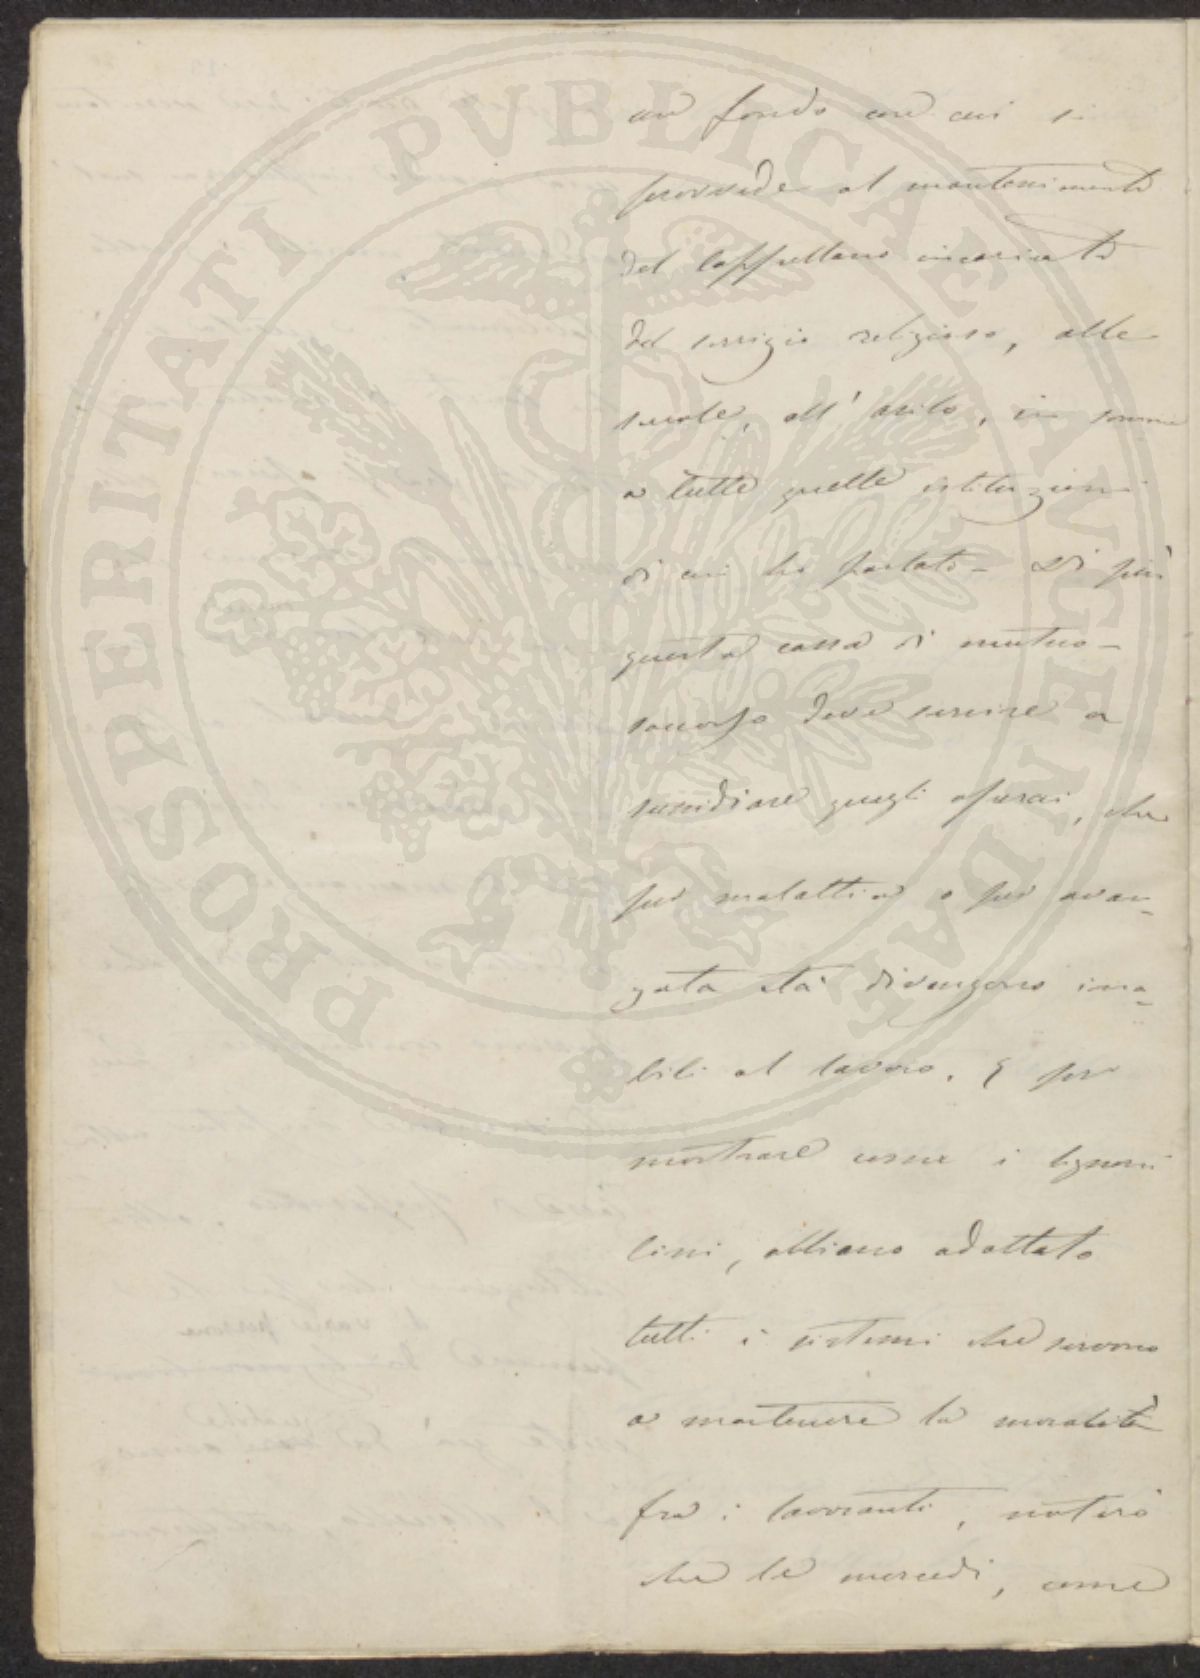 un fondo con cui si
provvede al mantenimento
del Cappellano incaricato
del servizio religioso, alle
scuole, all' asilo, in somma
a tutte quelle istituzioni
di cui ho parlato - Di più
questa cassa di mutuo -
soccorso deve servire a
sussidiare quegli operai, che
per malattia o per avan-
zata età divengono ina-
bili al lavoro. E per
mostrare come i Signori
Cini, abbiano adottato
tutti i sistemi che servono
a mantenere la moralità
fra i lavoranti, noterò
che le mercedi, come
PROSPERITATI PVBLICAE AVGENDAE